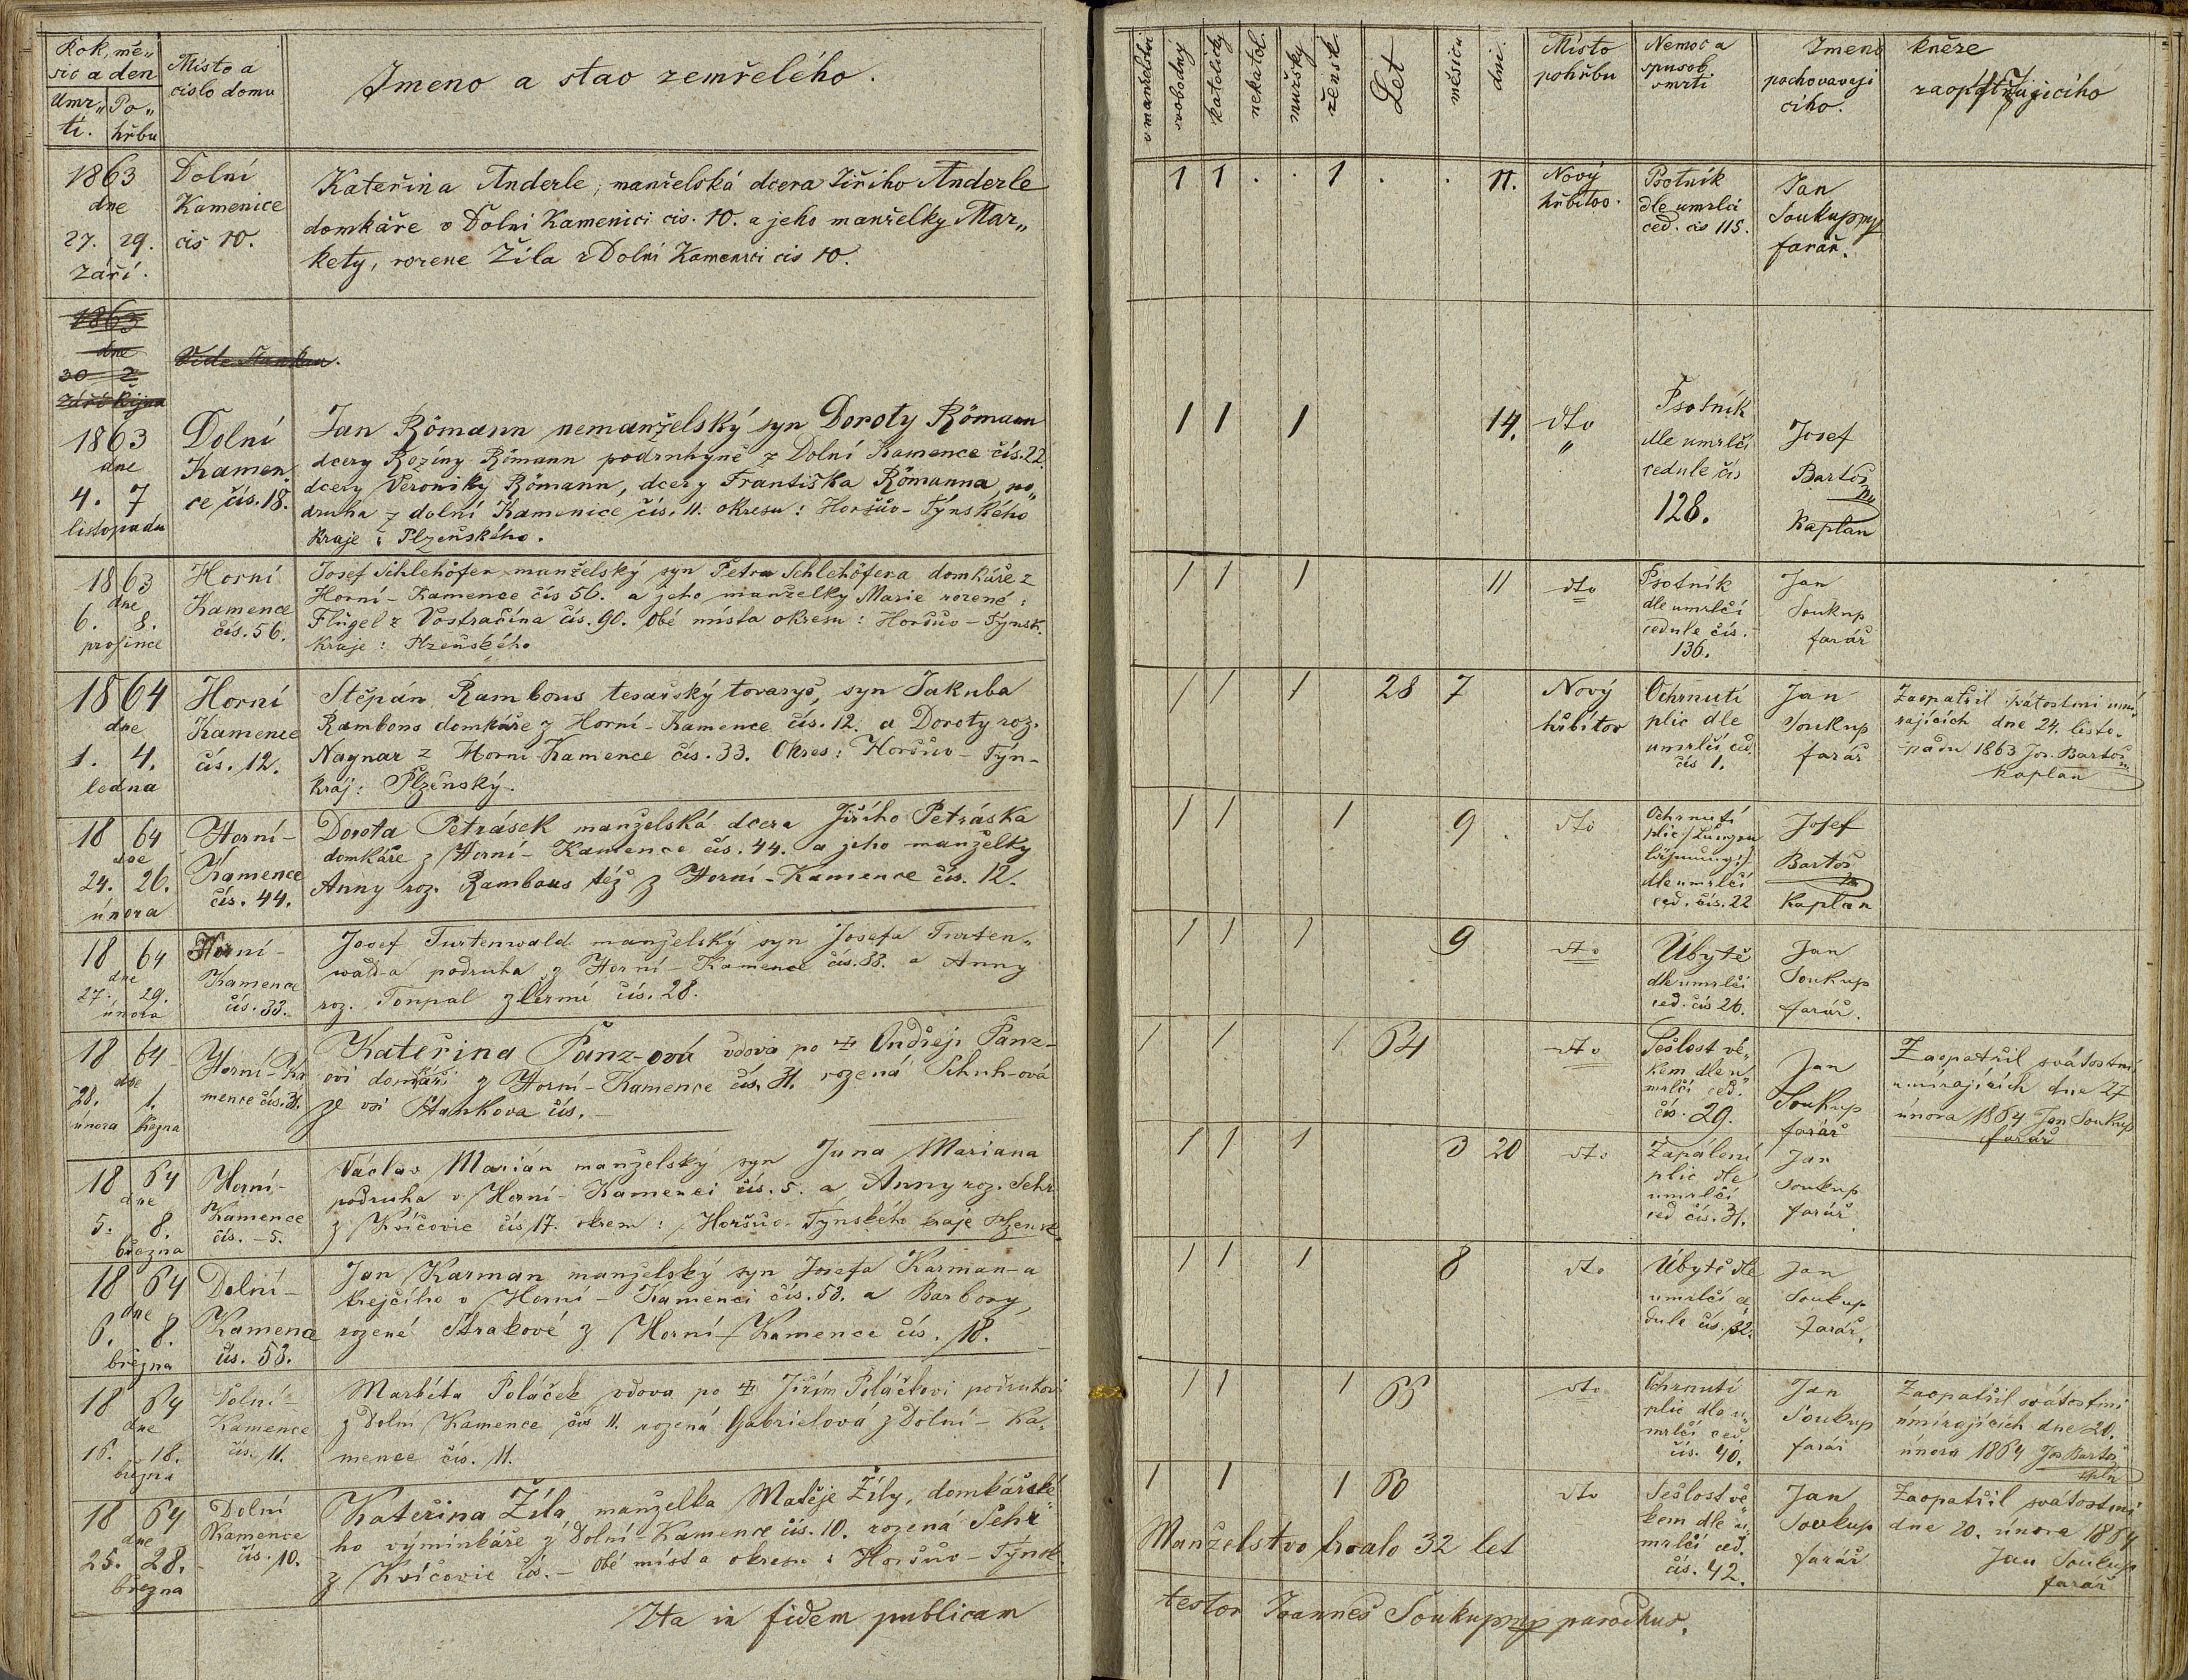 Rok, mě„
sic a den
Umr„
ti.
Po„
hřbu
Místo a
cislo domu
Jmeno a stav zemřelého.
v manželstvi
svobodny
katolicky
nekatol.
mužsky
žensk.
Let
měsicu
dni.
Místo
pohřbu
Nemoc a
spusob
smrti
Jmeno kněze
pochovavaji
ciho.
zaopatřujicího
1863
dne
27. 29.
září.
Dolní
Kamenice
cis 10.
Kateřina Anderle, manželská dcera Jiřího Anderle
domkáře v Dolni Kamenici cis. 10. a jeho manželky Mar„
kety, rozene Žila z Dolni Kamenici cis 10.
1 1 . . 1 . . 11.
Nový
hřbitov.
Psotník
dle umrlči
ced. cis 115.
Jan
Soukup
farář.
1863
dne
30 2
září října
1863
dne
4. 7
listopadu
Dolní
Kamen„
ce čís. 18.
Jan Römann nemanželský syn Doroty Römann
dcery Rozíny Römann podruhyně z Dolní Kamence čís. 22.
dcery Veroniky Römann, dcery Františka Römanna po„
druha z dolní Kamenice čís. 11. okresu: Horšův-Týnského
kraje: Plzeňského.
1 1 1 14.
dto
„
Psotník
dle umrlčí
cedule čís
128.
Josef
Bartoš
Kaplan
1863
dne
6. 8.
prosince
Horní
Kamence
čís. 56.
Josef Schlehöfer manželský syn Petra Schlehöfera domkáře z
Horní-Kamence čís 56. a jeho manželky Marie rozené:
Flügel z Vostračína čís. 90. obé místa okresu: Horšův-Týnsk.
kraje: Plzeňského
1 1 1 11
dto
Psotník
dle umrlčí
cedule čís.
136.
Jan
Soukup
farář
1864
dne
1. 4.
ledna
Horní
Kamence
čís. 12.
Štěpán Rambous tesařský tovaryš, syn Jakuba
Rambous domkáře z Horní-Kamence čís. 12. a Doroty roz.
Nagnar z Horní Kamence čís. 33. Okres: Horšův-Týn-
kráj: Plzeňský.
1 1 1 28 7
Nový
hřbitov
Ochrnutí
plic dle
umrlčí ced.
čís 1.
Jan
Soukup
farář
Zaopatřil svátostmi umí„
rajících dne 24. listo„
padu 1863 Jos. Bartoš
Kaplan
1864
dne
24. 26.
února
Horní-
Kamence
čís. 44.
Dorota Petrásek manželská dcera Jiřího Petráska
domkáře z Horní-Kamence čís. 44. a jeho manželky
Anny roz. Rambous též z Horní-Kamence čís. 12.
1 1 1 9 .
dto
Ochrnutí
plic
dle umrlčí
ced. čís. 22
Josef
Bartoš
Kaplan
1864
dne
27. 29.
února
Horní-
Kamence
čís. 33.
Josef Turtenwald manželský syn Josefa Turten„
wald-a podruha z Horní-Kamence čís. 33. a Anny
roz. Tonpal z čís. 28.
1 1 1 9
dto
Úbytě
dle umrlčí
ced. čís 26.
Jan
Soukup
farář.
1864
dne
28. 1.
února března
Horní-Ka
mence čís. 31.
Kateřina Panz-ová vdova po Ondřeji Panz-
ovi domkáři z Horní-Kamence čís. 31. rozená Schuh-ová
ze vsi Stankova čís. –
1 1 1 64
dto
Sešlost vě„
kem dle u„
mrlčí ced.
čís. 29.
Jan
Soukup
farář
Zaopatřil svátostmi
umírajících dne 27
února 1864 Jan Soukup
farář
1864
dne
5. 8.
března
Horní-
Kamence
čís. – 5.
Václav Marián manželský syn Jana Mariana
podruha v Horní-Kamenci čís. 5. a Anny roz. Sehr
z Kvíčovic čís 17. okresu: Horšův-Týnského kraje Plzensk.
1 1 1 3 20
dto
Zapálení
plic dle
umrlčí
ced čís. 31.
Jan
Soukup
farář
1864
dne
6. 8.
března
Dolní-
Kamence
čís. 53.
Jan Karman manželský syn Josefa Karman-a
krejčího v Horní-Kamenci čís. 53. a Barbory,
rozené Strakové z Horní-Kamence čís. 18.
1 1 1 8
dto
Úbytě dle
umrlčí ce
dule čís. 32.
Jan
Soukup
farář.
1864
dne
16. 18.
března
Dolní-
Kamence
čís. 11.
Markéta Poláček, vdova po Jiřím Poláčkovi podruhovi
z Dolní Kamence čís 11. rozená Gabrielová z Dolní-Ka„
mence čís. 11.
1 1 1 66
dto
Ochrnutí
plic dle u„
mrlčí ced.
čís. 40.
Jan
Soukup
farář
Zaopatřil svátostmi
umírajících dne 20.
února 1864 Jos Bartoš
1864
dne
25. 28.
března
Dolní
Kamence
čís. 10.
Kateřina Žíla, manželka Matěje Žíly, domkářské„
ho výminkáře z Dolní-Kamence čís. 10. rozená Sehr
z Kvíčovic čís. – Obé místa okresu: Horšův-Týnsk
1 1 1 60
dto
Sešlost vě„
kem dle u„
mrlčí ced.
čís. 42.
Jan
Soukup
farář
Zaopatřil svátostmi
dne 20. února 1864
Jan Soukup
farář
Manželstvo trvalo 32 let
Ita in fidem publicam
testor Joannes Soukup parochus.